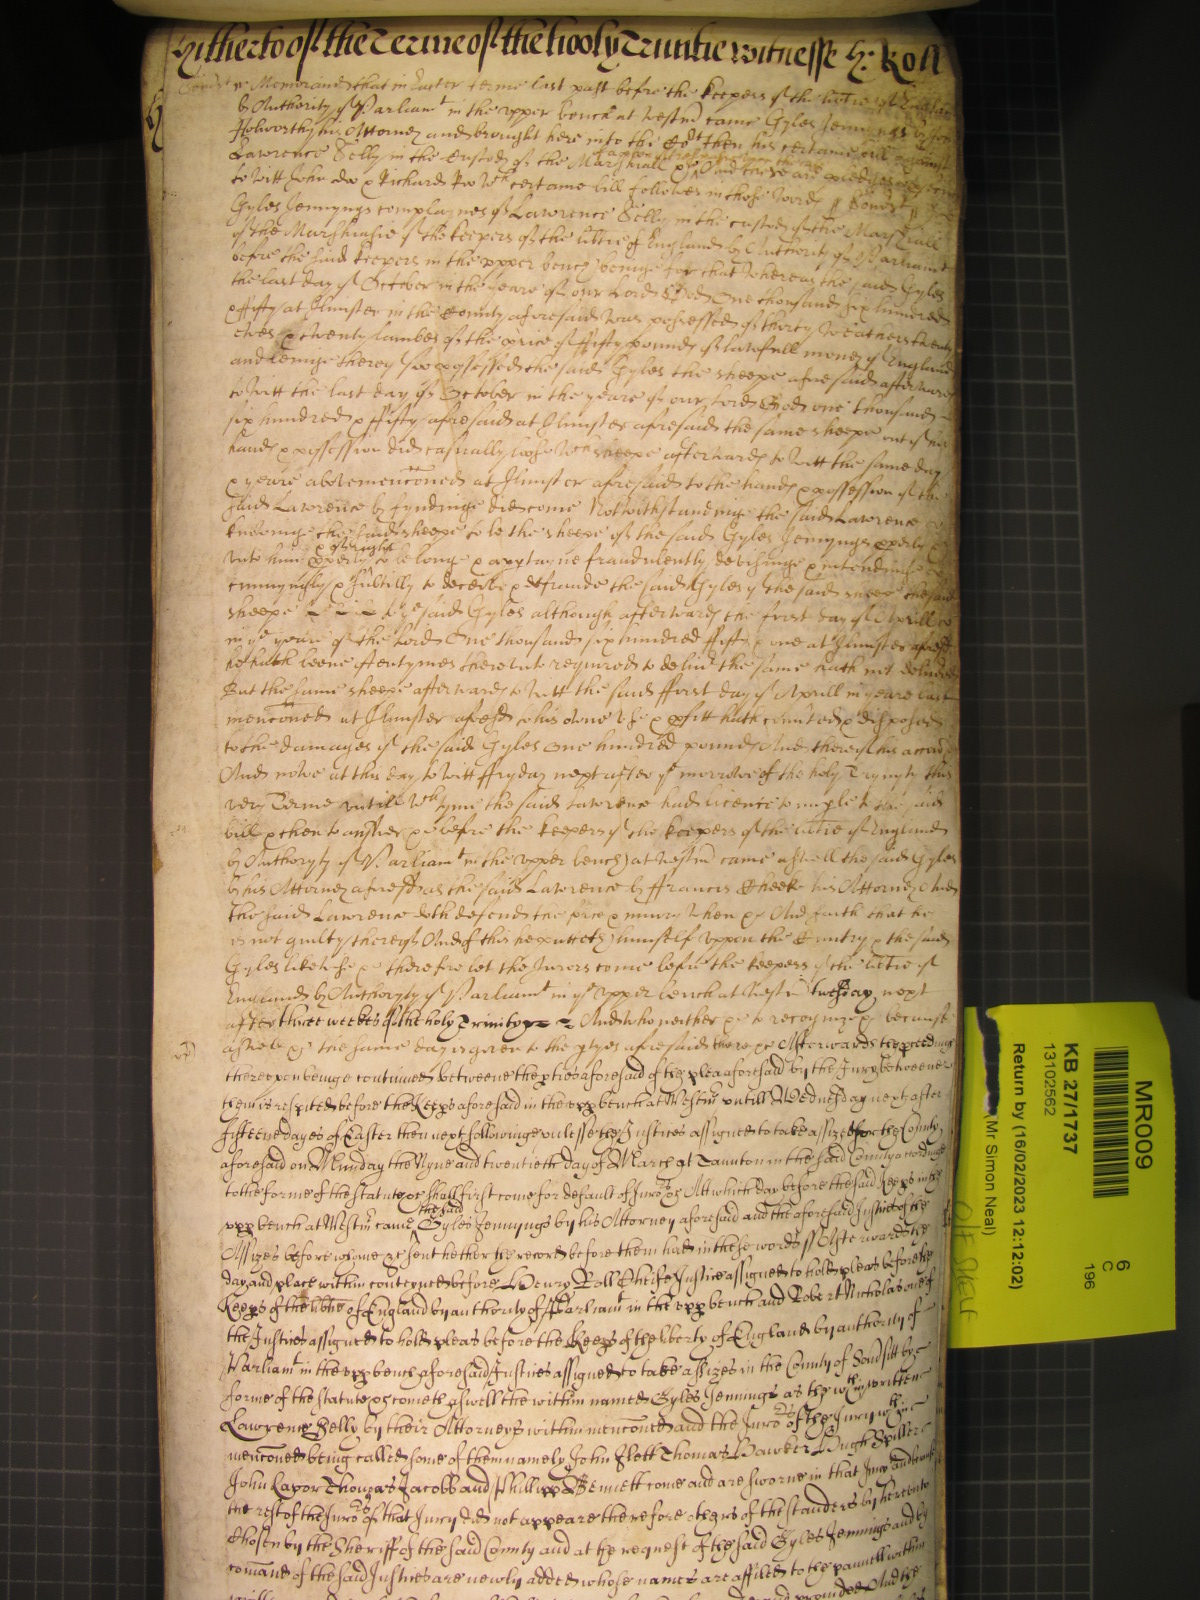 Hitherto of the Terme of the hooly Trinitie witnesse H: Roll
Memorand that in Easter terme last past before the keepers of the litie of England
by Authority of Parliamt in the upper bench at Westm came Gyles Jennyngs by John
Holworthy his Attorney and brought here into the Cot then his certaine bill against
Lawrence Selly in the Custody of the Marshall &c And there are pledges
to witt John Doe & Richard Roe wch certaine bill followes in these words ss Somst ss
Gyles Jennyngs complaynes of Lawrence Selly in the custody of the Marshall
of the Marshalsie of the keepers of the litie of England by Authority of Parliamt
before the said keepers in the upper bench beinge for that whereas the said Gyles
the last day of October in the yeare of our Lord God One thousand six hundred
& fifty at Ilmister in the County aforesaid was possessed of thirty Weathers twenty
Ewes & twenty lambes of the price of fifty pounds of lawfull money of England
and beinge thereof soe possessed the said Gyles the sheepe aforesaid afterwards
to witt the last day of October in the yeare of our Lord God one thousand
six hundred & fifty aforesaid at Ilmister aforesaid the same sheepe out of his
hands & possession did casually loose wch sheepe afterwards to witt the same day
& yeare abovementioned at Ilmister aforesaid to the hands & possession of the
said Lawrence by fyndinge did come Notwithstandinge the said Lawrence
knowinge the said sheepe to be the sheepe of the said Gyles Jennyngs pperly &
unto him & of right pperly to belonge & aperteyne fraudulently devisinge & intendinge
cunnyngly & subtilly to deceive & defraude the said Gyles of the said sheepe the said
sheepe to ye said Gyles although afterwards the first day of Aprill
in ye yeare of the Lord One thousand six hundred fifty & one at Ilmister aforesd
he hath beene oftentymes thereunto required to delivr the same hath not delivred
But the same sheepe afterwards to witt the said first day of Aprill in yeare last
mencõned at Ilmister aforesd to his owne use & pfitt hath converted & disposed
to the damages of the said Gyles One hundred pounds And thereof his
And nowe at this day to witt fryday next after ye morrowe of the holy Trynyty this
very Terme untill wch tyme the said Lawrence had licence to imple to the said
bill & then to answer &c before the keepers of the keepers of the litie of England
by Authoryty of Parliamt in the upper bench at Westm came aswell the said Gyles
by his Attorney aforesd as the said Lawrence by ffrancis Cheeke his Attorney And
the said Lawrence doth defend the force & iniury when &c And saith that he
is not guilty thereof And of this he putteth himself uppon the Cuntry & the said
Gyles likewise &c therefore let the Jurors come before the keepers of the litie of
England by Authoryty of Parliamt in ye upper bench at Westm tuesday next
after three weekes of the holy Trinity And who neither &c to recognize &c because
aswell &c the same day is given to the ptyes aforesaid there &c Afterwards the pceedings
thereupon beinge continued betweene the pties aforesaid of the plea aforesaid by the Jury betweene
them is respited before the Keeps aforesaid in the upp bench at Westm untill Wednesday next after
fifteene dayes of Easter then next followinge unlesse the Justices assigned to take assizes for the County
aforesaid on Munday the Nyne and twentieth day of March at Taunton in the said County accordinge
to the forme of the statute &c shall first come for default of Jurors &c Att which day before the said Keeps in the
upp bench at Westm came the said Gyles Jennyngs by his Attorney aforesaid and the aforesaid Justices of the
Assizes before whome &c sent hether the record before them had in these words ss Afterwards the
day and place within conteyned before Henry Roll Cheife Justice assigned to hold pleas before the
Keeps of the libtie of England by authority of Parliamt in the upp bench and Robert Nicholas one of
the Justices assigned to hold pleas before the Keeps of the liberty of England by authority of
Parliamt in the upp bench aforesaid Justices assigned to take assizes in the County of Somsett by
forme of the statute &c cometh aswell the within named Gyles Jennings as the wthin written
Lawrence Selly by their Attorneys within mencõned and the Jurors of the Jury wthin
mencõned being called some of them namely John Flett Thomas Hawker Hugh Spiller
John Lavor Thomas Jacobb and Phillipp Bennett come and are sworne in that Jury and because
the rest of the Jurors of that Jury did not appeare therefore others of the standers by hereunto
chosen by the Sheriff of the said County and at the request of the said Gyles Jennings and by
comand of the said Justices are newly added whose names are affiled to the pannell within
MR009
6
C
196
KB 27/1737
13102562
(Mr Simon Neal)
Return by (16/02/2023 12:12:02)
O/F SHELF